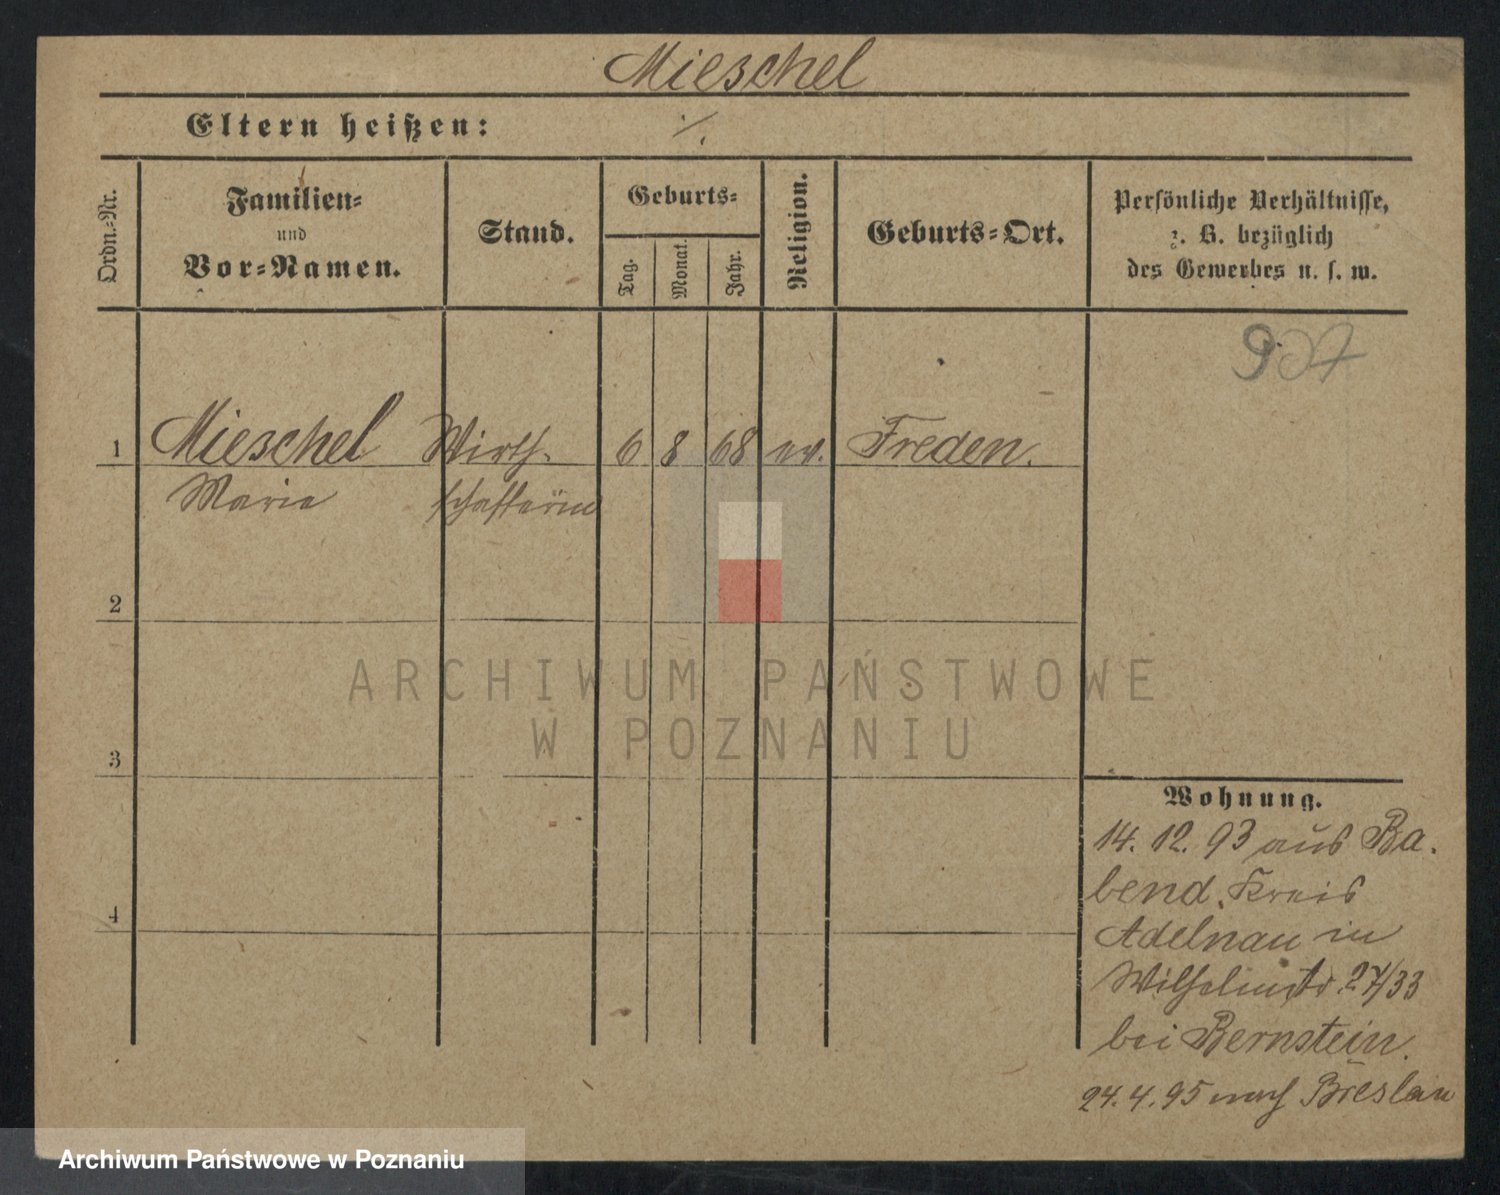 Mieschel
Eltern heißen: ./.
Ordn.-Nr.
Familien-
und
Vor-Namen.
Stand.
Geburts-
Tag.
Monat.
Jahr.
Religion.
Geburts-Ort.
Persönliche Verhältnisse,
z. B. bezüglich
des Gewerbes u. s. w.
1 Mieschel Wirth- 6 8 68 ev. Freden.
Marie schafterin
2
3
4
Wohnung.
14. 12. 93 aus Ba-
bend, Kreis
Adelnau in
Wilhelmstr. 27/33
bei Bernstein.
24. 4. 95 nach Breslau
ARCHIWUM PAŃSTWOWE
W POZNANIU
Archiwum Państwowe w Poznaniu